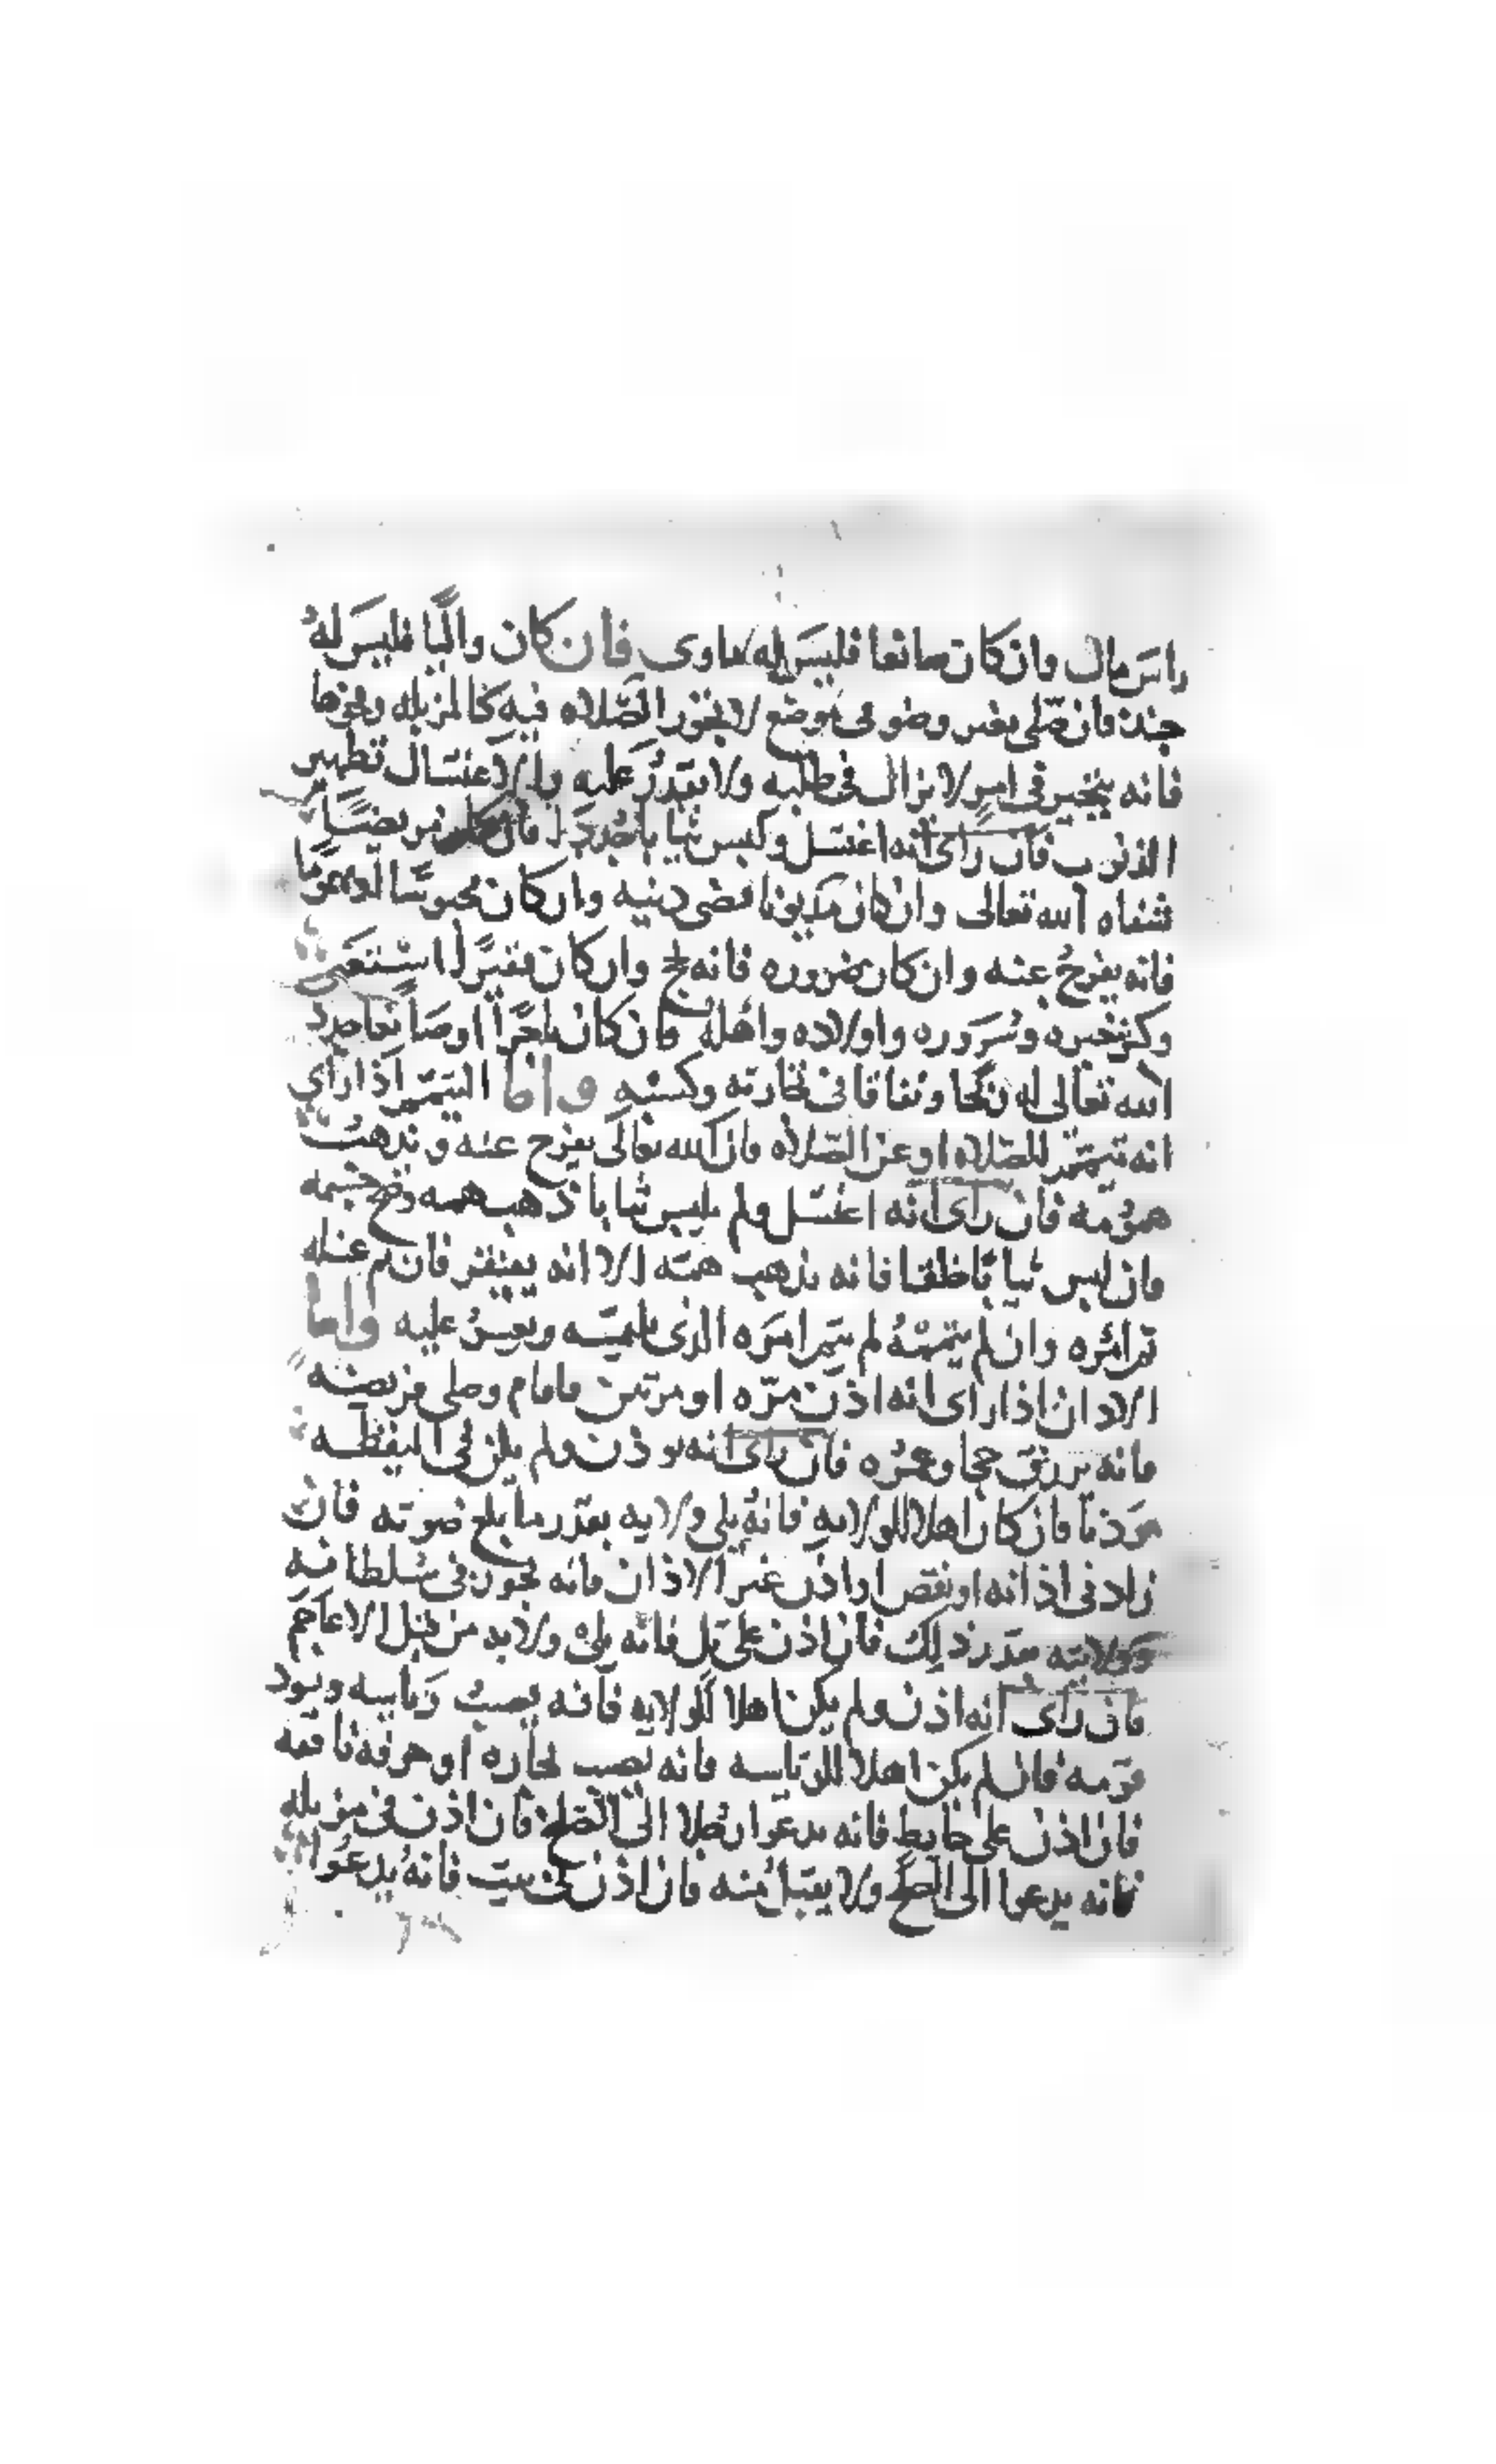 راس مال وان كان صانعا فليس له ماوى فان كان واليا فليس له
جند فان صلى بغير وضو فى موضع لا تجوز الصلاه فيه كالمزبله ونحوها
فانه يتحير فى امر لا يزال فى طلبه ولا يقدر عليه والاغتسال تطهير
الذنوب فان راى انه اغتسل ولبس ثيابا جددا فان كان مريضا
شفاه الله تعالى وان كان مديونا قضى دينه وان كان محبوسا او مغموما
فانه يفرج عنه وان كان ضروره فانه يحج وان كان فقيرا استغنى
وكثر خيره وسروره واولاده واهله فان كان تاجرا او صانعا جدد
الله تعالى له نجحا ونفاقا فى تجارته وكسبه واما التيمم اذا راى
انه تيمم للصلاه او عن الصلاه فان الله تعالى يفرج عنه ويذهب
همومه فان راى انه اغتسل ولم يلبس ثيابا ذهب همه وصح جسمه
وان لبس ثيابا خلقا فانه يذهب همه الا انه يفتقر فان تم غسله
تم امره وان لم يتممه لم يتم امره الذى يلتمسه ويعسر عليه واما
الاذان اذا راى انه اذن مره او مرتين فاقام وصلى فريضه
فانه يرزق حجا وعمره فان راى انه يوذن ولم يكن فى اليقظه
موذنا فان كان اهلا للولايه فانه يلى ولايه بقدر ما بلغ صوته فان
زاد فى اذانه او نقص او اذن غير الاذان فانه يجور فى سلطانه
وولايته بقدر ذلك فان اذن على تل فانه يلى ولايه من قبل الاعاجم
فان راى انه اذن ولم يكن اهلا للولايه فانه يصيب رياسه ويسود
قومه فان لم يكن اهلا للرياسه فانه يصيب تجاره او حرفه نافعه
فان اذن على حايط فانه يدعوا رجلا الى الصلح فان اذن فى مزبله
فانه يدعوا الى الصلح ولا يقبل منه فان اذن فى بيت فانه يدعوا